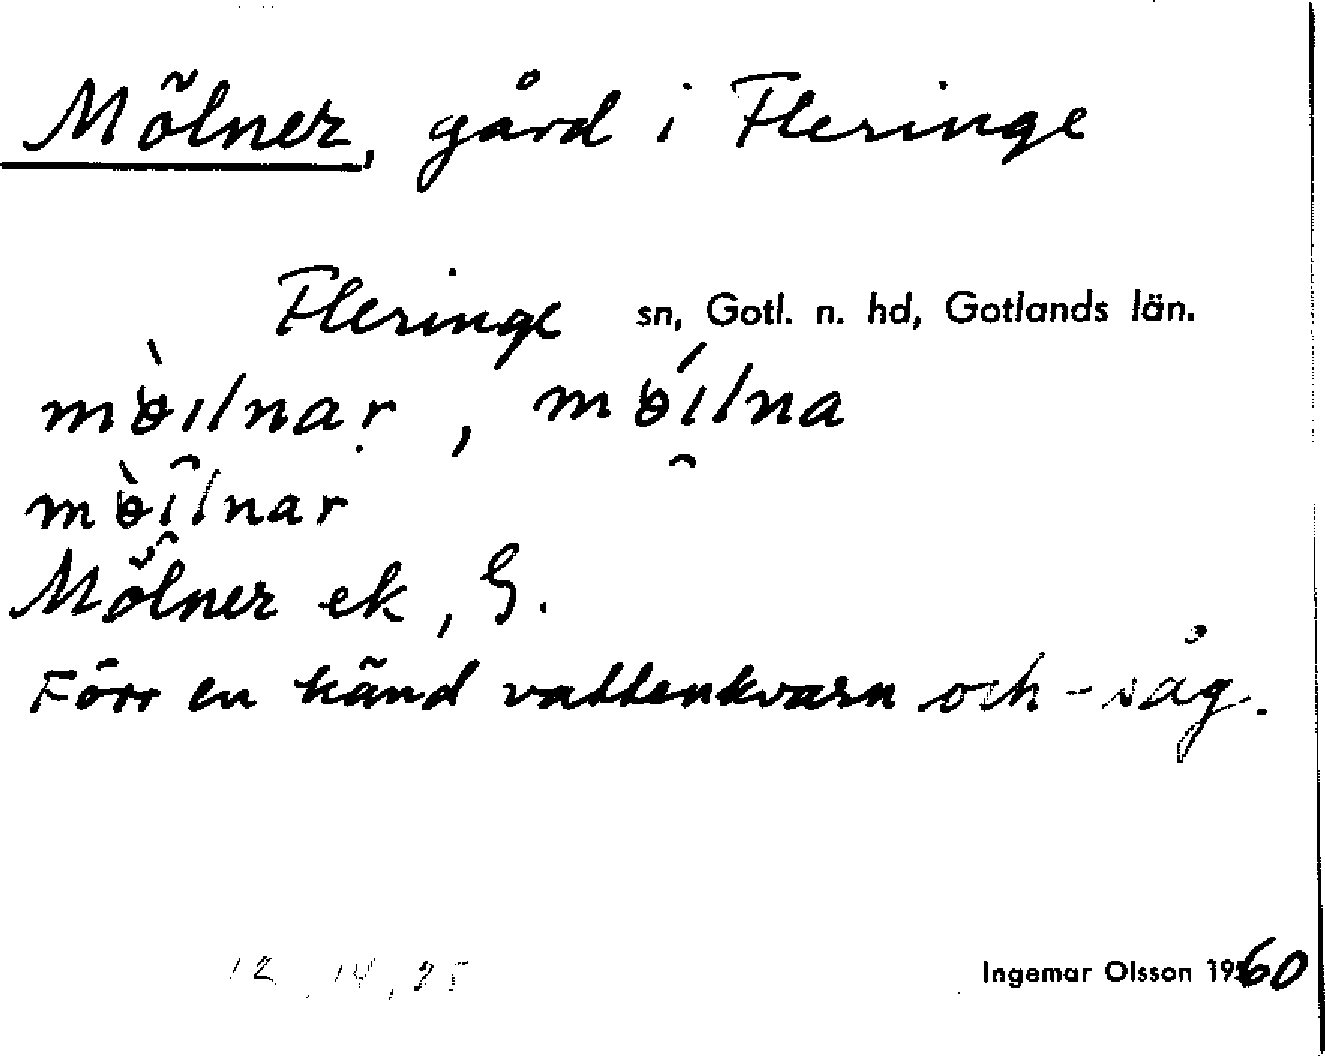 Mölner, gård i Fleringe
Fleringe sn, Gotl. n. hd, Gotlands län.
mɵ̀ılnar̥, mɵ́ılna
mɵ̀ılnar
Mölner ek, G.
Förr en känd vattenkvarn och -såg.
12, 14, 25 Ingemar Olsson 1960